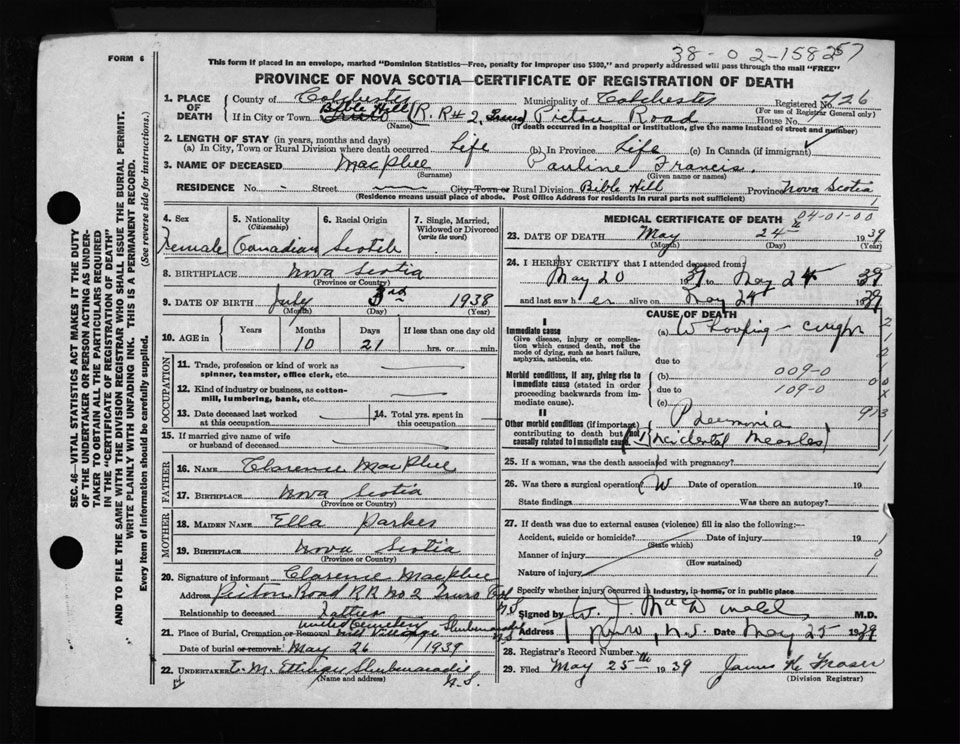 38-02-15825
57
FORM 6
This form if placed in an envelope, marked "Dominion Statistics—Free, penalty for improper use $300," and properly addressed will pass through the mail "FREE"
PROVINCE OF NOVA SCOTIA—CERTIFICATE OF REGISTRATION OF DEATH
SEC. 46—VITAL STATISTICS ACT MAKES IT THE DUTY
OF THE UNDERTAKER OR PERSON ACTING AS UNDER-
TAKER TO OBTAIN ALL THE PARTICULARS REQUIRED
IN THE "CERTIFICATE OF REGISTRATION OF DEATH"
AND TO FILE THE SAME WITH THE DIVISION REGISTRAR WHO SHALL ISSUE THE BURIAL PERMIT.
WRITE PLAINLY WITH UNFADING INK. THIS IS A PERMANENT RECORD.
Every item of information should be carefully supplied. (See reverse side for instructions.)
1. PLACE OF DEATH County of Colchester Municipality of Colchester Registered No. 726
(For use of Registrar General only)
If in City or Town Truro Bible Hill (R. R # 2, Truro) Picton Road House No.
(Name) (If death occurred in a hospital or institution, give the name instead of street and number)
2. LENGTH OF STAY (in years, months and days)
(a) In City, Town or Rural Division where death occurred Life (b) In Province Life (c) In Canada (if immigrant)
3. NAME OF DECEASED MacPhee Pauline Francis.
(Surname) (Given name or names)
RESIDENCE No. - Street City, Town or Rural Division Bible Hill Province Nova Scotia
(Residence means usual place of abode. Post Office Address for residents in rural parts not sufficient)
4. Sex 5. Nationality (Citizenship) 6. Racial Origin 7. Single, Married, Widowed or Divorced (write the word)
Female Canadian Scotch
8. BIRTHPLACE Nova Scotia
(Province or Country)
9. DATE OF BIRTH July 3rd 1938
(Month) (Day) (Year)
10. AGE in Years Months Days If less than one day old
10 21 hrs. or min.
OCCUPATION
11. Trade, profession or kind of work as
spinner, teamster, office clerk, etc.
12. Kind of industry or business, as cotton-
mill, lumbering, bank, etc.
13. Date deceased last worked at this occupation 14. Total yrs. spent in this occupation
15. If married give name of wife
or husband of deceased
FATHER
16. NAME Clarence MacPhee
17. BIRTHPLACE Nova Scotia
(Province or Country)
MOTHER
18. MAIDEN NAME Ella Parkes
19. BIRTHPLACE Nova Scotia
(Province or Country)
20. Signature of informant Clarence MacPhee
Address Picton Road R.R. No 2 Truro Col N.S
Relationship to deceased Father
United Cemetery Shubenacadie
21. Place of Burial, Cremation or Removal Mill Village N.S.
Date of burial or removal May 26 1939
22. UNDERTAKER Shubenacadie
(Name and address) N.S.
MEDICAL CERTIFICATE OF DEATH 04-01-00
23. DATE OF DEATH May 24th 1939
(Month) (Day) (Year)
24. I HEREBY CERTIFY that I attended deceased from
May 20 1939 to May 24 1939
and last saw her alive on May 24 1939
CAUSE OF DEATH
I
Immediate cause (a) Whooping-cough
Give disease, injury or complica-
tion which caused death, not the
mode of dying, such as heart failure,
asphyxia, asthenia, etc. due to
Morbid conditions, if any, giving rise to (b) 009-0
immediate cause (stated in order due to 109-0
proceeding backwards from im-
mediate cause). (c)
II
Other morbid conditions (if important) Pneumonia
contributing to death but not
causally related to immediate cause. (Incidental Measles)
25. If a woman, was the death associated with pregnancy?
26. Was there a surgical operation? Date of operation 19
State findings Was there an autopsy?
27. If death was due to external causes (violence) fill in also the following:—
Accident, suicide or homicide? Date of injury 19
(State which)
Manner of injury
(How sustained)
Nature of injury
Specify whether injury occurred in industry, in home, or in public place
Signed by M.D.
Address Truro, N.S. Date May 25 1939
28. Registrar's Record Number
29. Filed May 25th 1939 James K. Fraser
(Division Registrar)